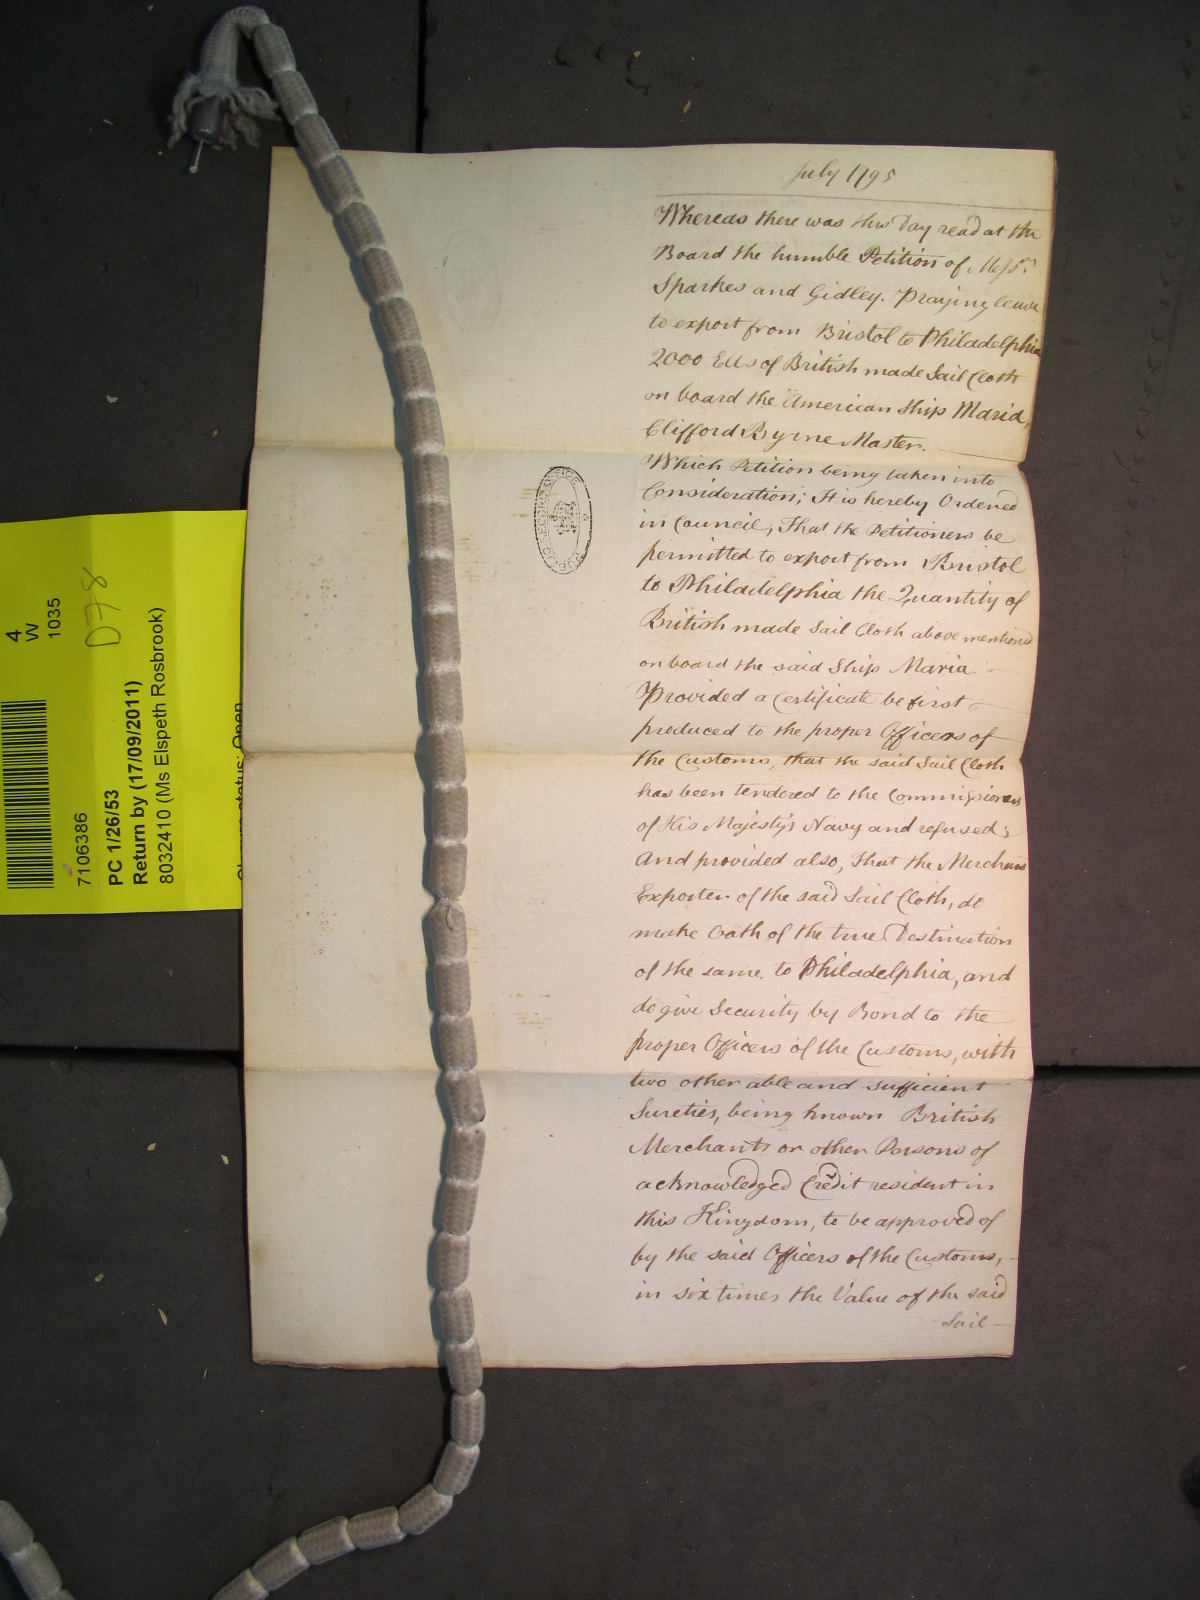 July 1795
Whereas there was this Day read at the
Board the humble Petition of Messrs
Sparkes and Gidley. Praying leave
to export from Bristol to Philadelphia
2000 Ells of British made Sail Cloth
on board the American Ship Maria,
Clifford Byrne Master.
Which Petition being taken into
Consideration; It is hereby Ordered
in Council, That the Petitioners be
permitted to export from Bristol
to Philadelphia the Quantity of
British made Sail Cloth above mentioned
on board the said Ship Maria
Provided a Certificate be first
produced to the proper Officers of
the Customs, that the said Sail Cloth
has been tendered to the Commissioners
of His Majesty's Navy and refused;
And provided also, That the Merchant
Exporter of the said Sail Cloth, do
make Oath of the true Destination
of the same to Philadelphia, and
do give Security by Bond to the
proper Officers of the Customs, with
two other able and sufficient
Sureties, being known British
Merchants or other Persons of
acknowledged Credit resident in
this Kingdom, to be approved of
by the said Officers of the Customs,
in six times the Value of the said
Sail
PUBLIC RECORD OFFICE
4
W
1035
D78
7106386
PC 1/26/53
Return by (17/09/2011)
8032410 (Ms Elspeth Rosbrook)
Closure status: Open